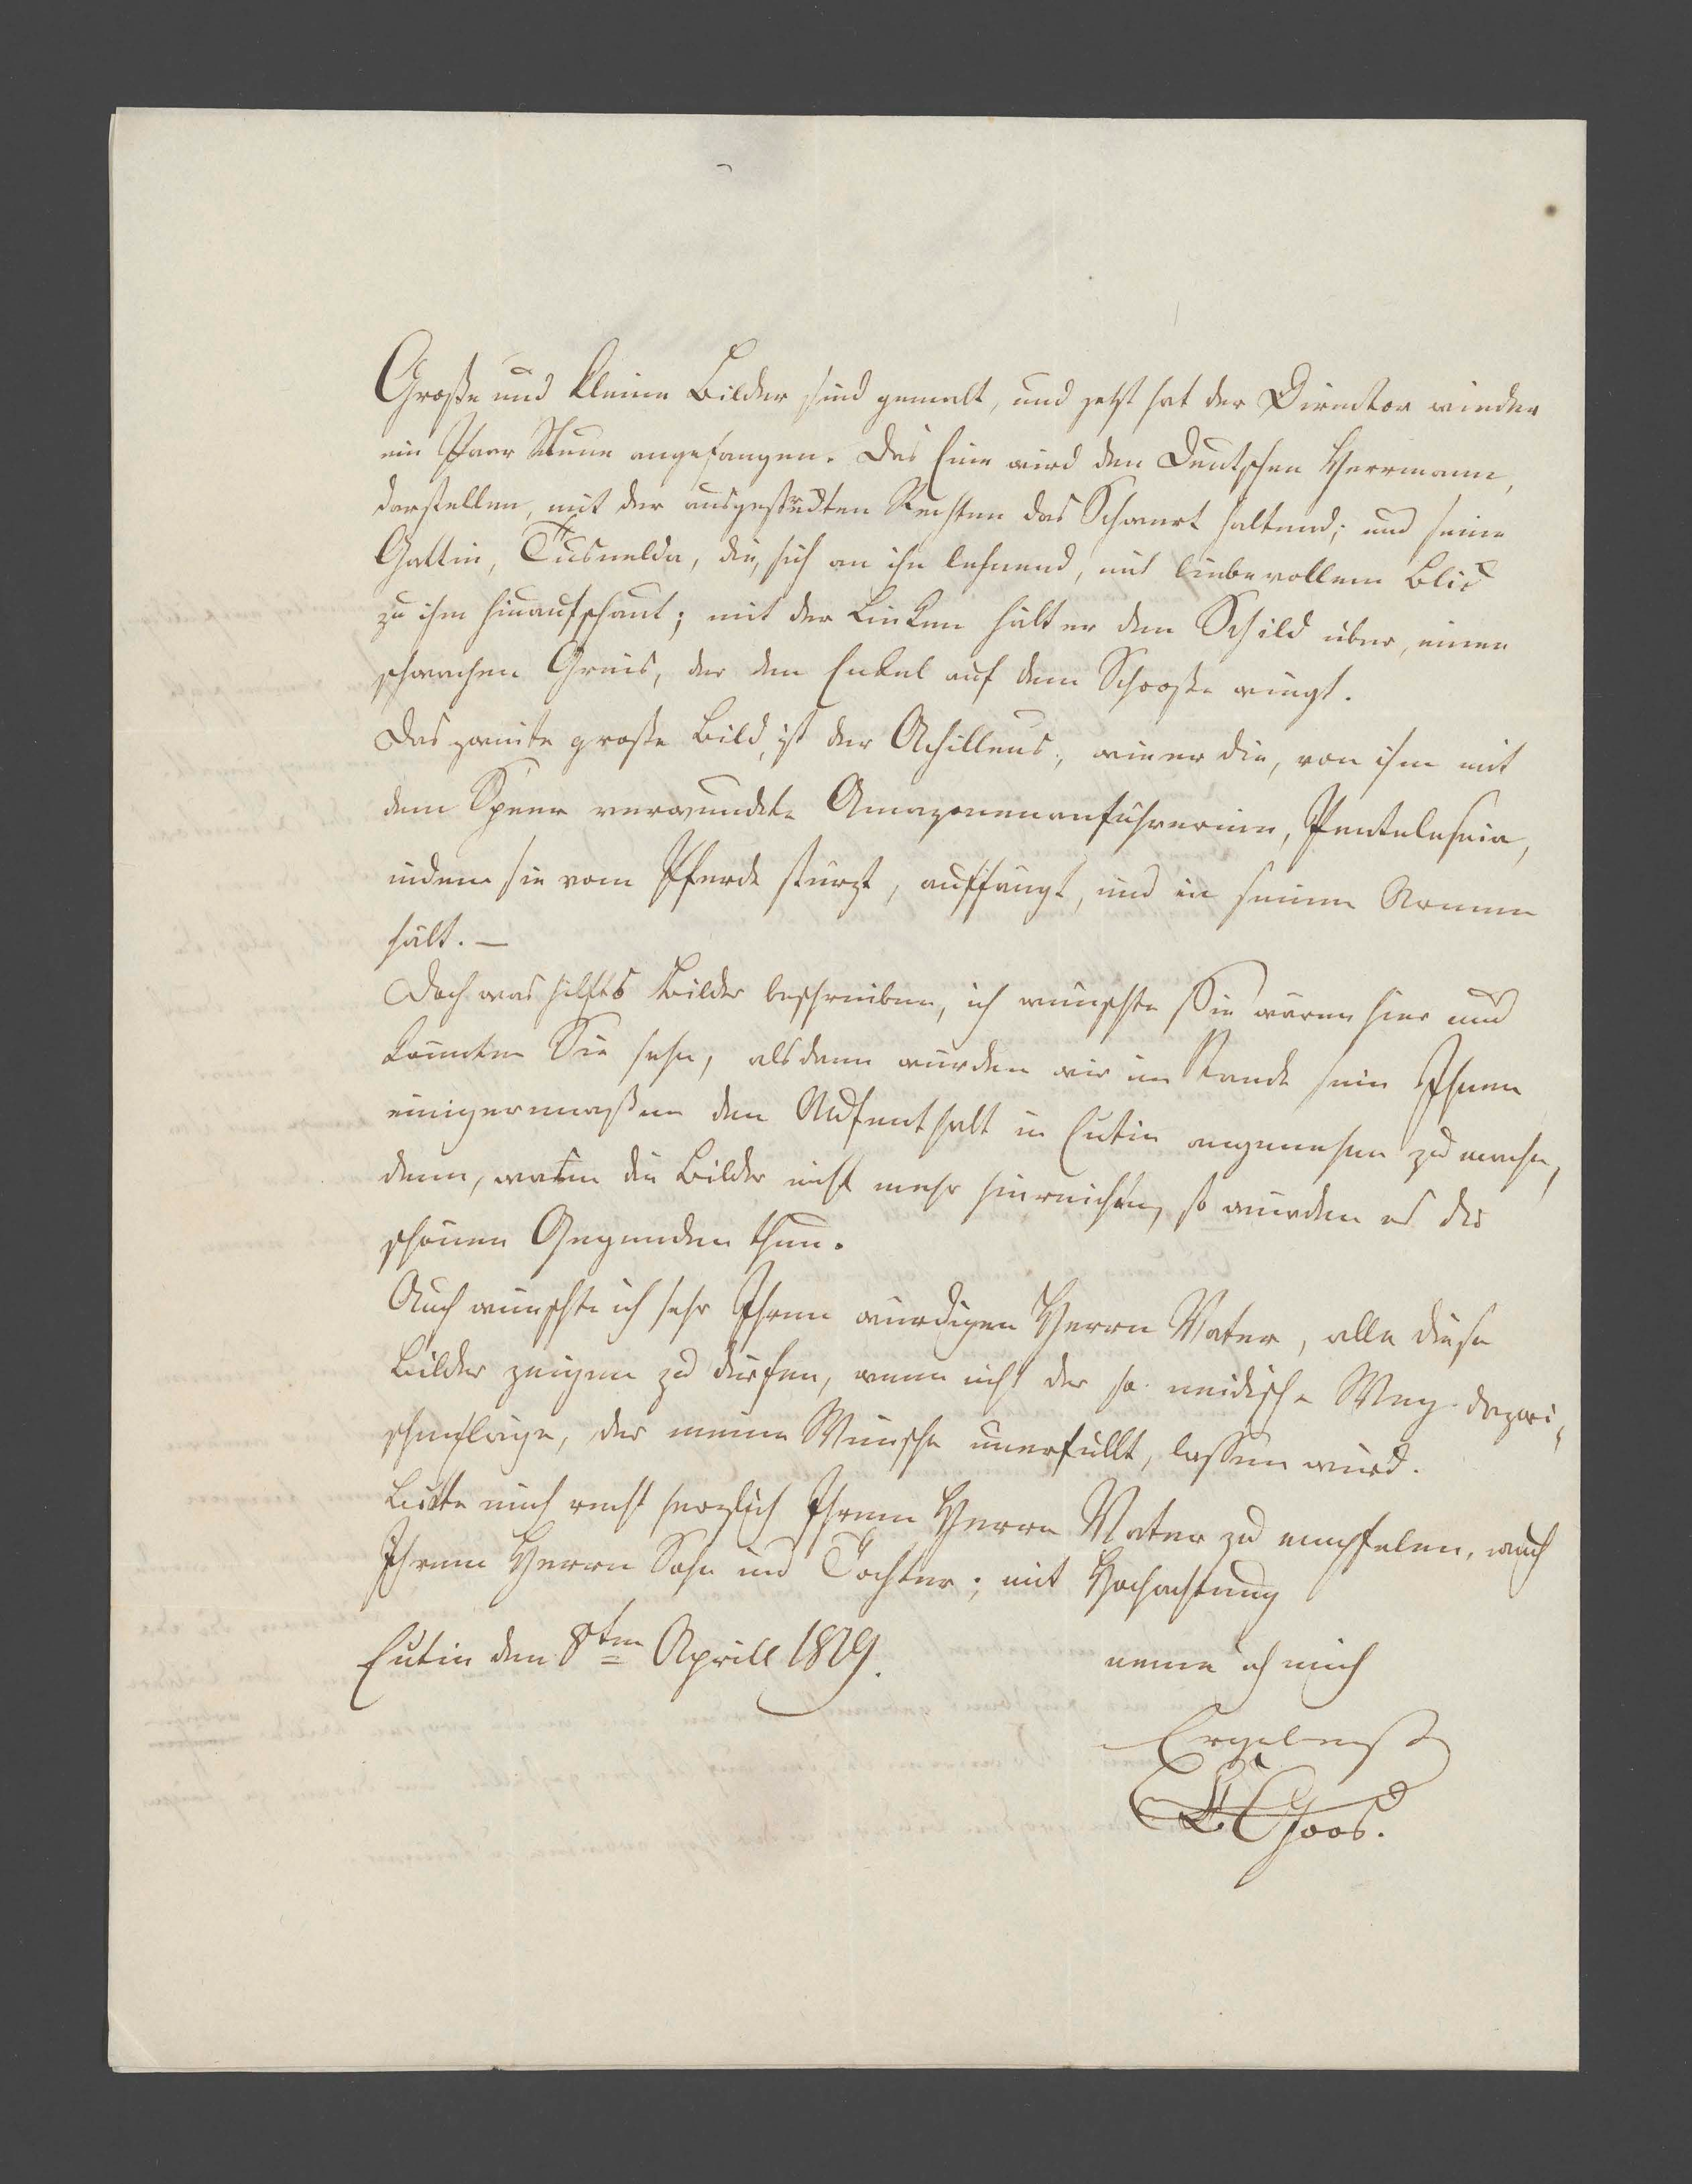 Große und kleine Bilder sind gemalt, und jetzt hat der Director wieder
ein Paar Neue angefangen. Das Eine wird den Deutschen Herrmann,
darstellen, mit der ausgestreckten Rechten das Schwert haltend; und seine
Gattin, Tusnelda, die, sich an ihn lehnend, mit liebevollem Blick
zu ihm hinaufschaut; mit der Linken hält er den Schild über, einen
schwachen Greis, der den Enkel auf dem Schooße wiegt.
Das zweite große Bild, ist der Achilleus, wie er die, von ihm mit
dem Speer verwundete Amazonenanführerinn, Penteleseia,
indem sie vom Pferde stürzt, auffängt, und in seinen Armen
hält. —
Doch was hilfts Bilder beschreiben, ich wünschte Sie wären hier und
könnten Sie sehn, alsdann würden wir im Stande sein Ihnen
einigermaßen den Aufenthalt in Eutin angenehm zu machen,
denn, wären die Bilder nicht mehr hinreichen, so würden es die
schönen Gegenden thun.
Auch wünschte ich sehr Ihrem würdigen Herrn Vater, alle diese
Bilder zeigen zu dürfen, wenn nicht der so neidische Weg dazwi-
schenläge, der meine Wünsche unerfüllt, lassen wird.
Bitte mich recht herzlich Ihrem Herrn Vater zu empfelen, auch
Ihrem Herrn Sohn und Töchter; mit Hochachtung
Eutin den 8ten Aprill 1829. nenne ich mich
Ergebenst
Goos.